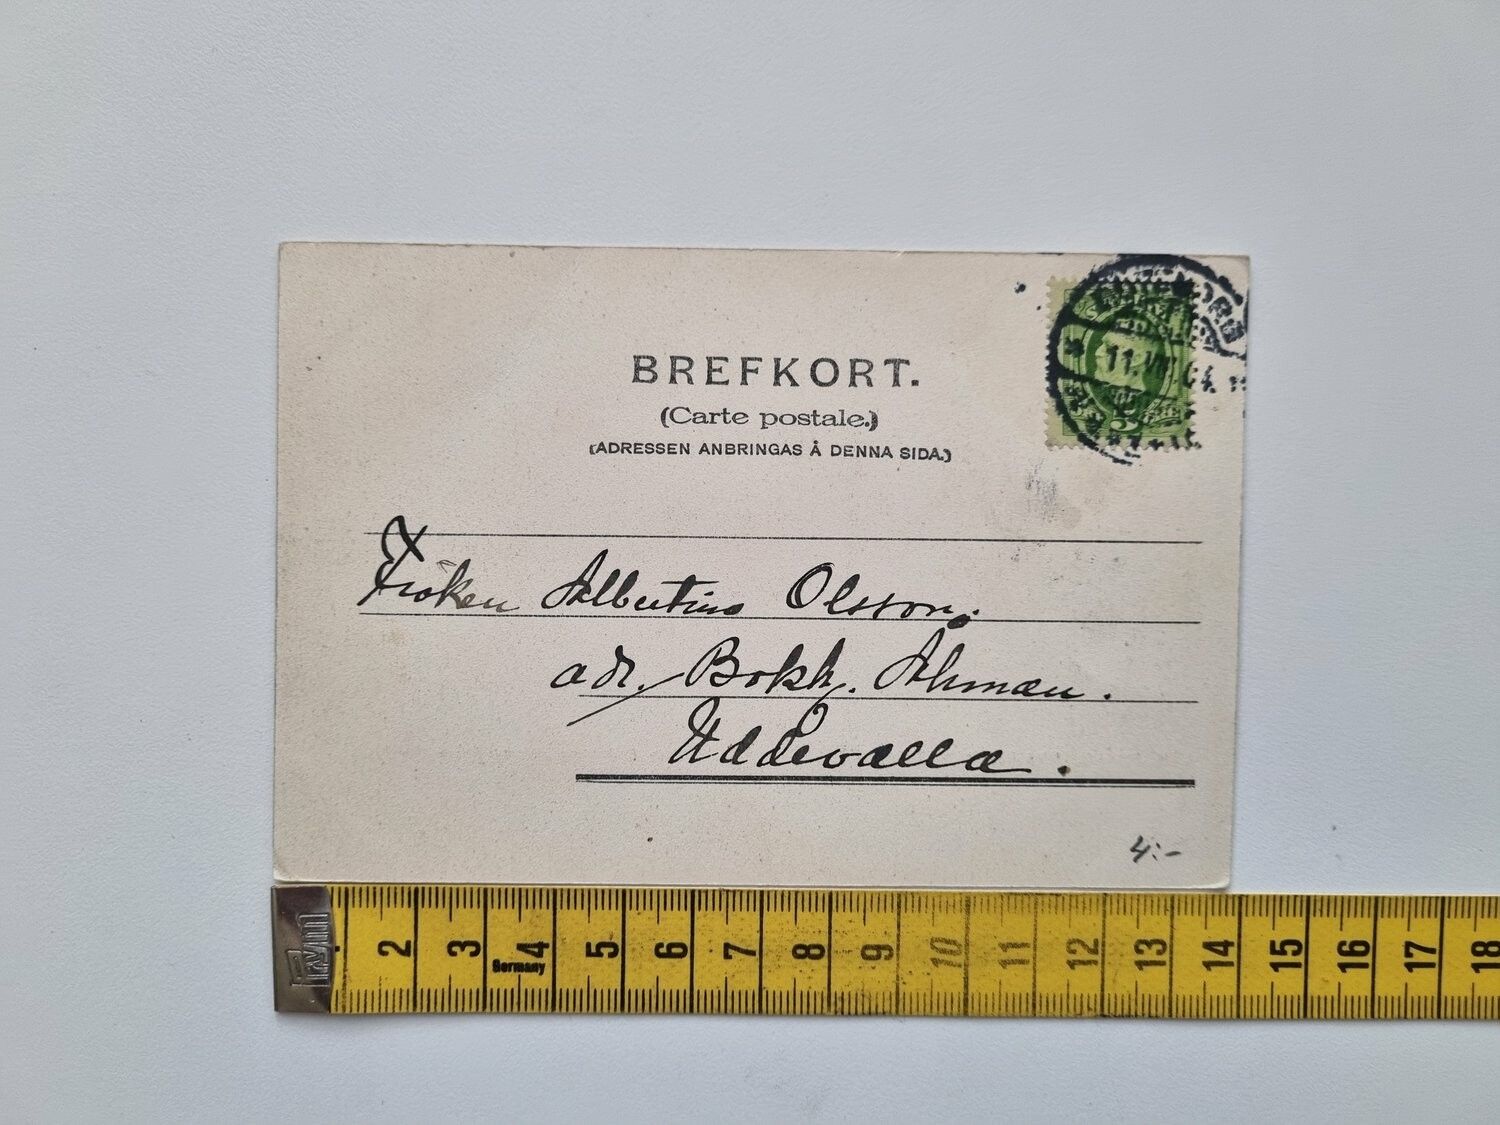 BREFKORT.
(Carte postale.)
(ADRESSEN ANBRINGAS Å DENNA SIDA.)
11.VII.04
5
Fröken Albertina Olsson,
adr. Bokh. Ahman.
Uddevalla.
4:-
2 3 4 5 6 7 8 9 10 11 12 13 14 15 16 17 18
Germany